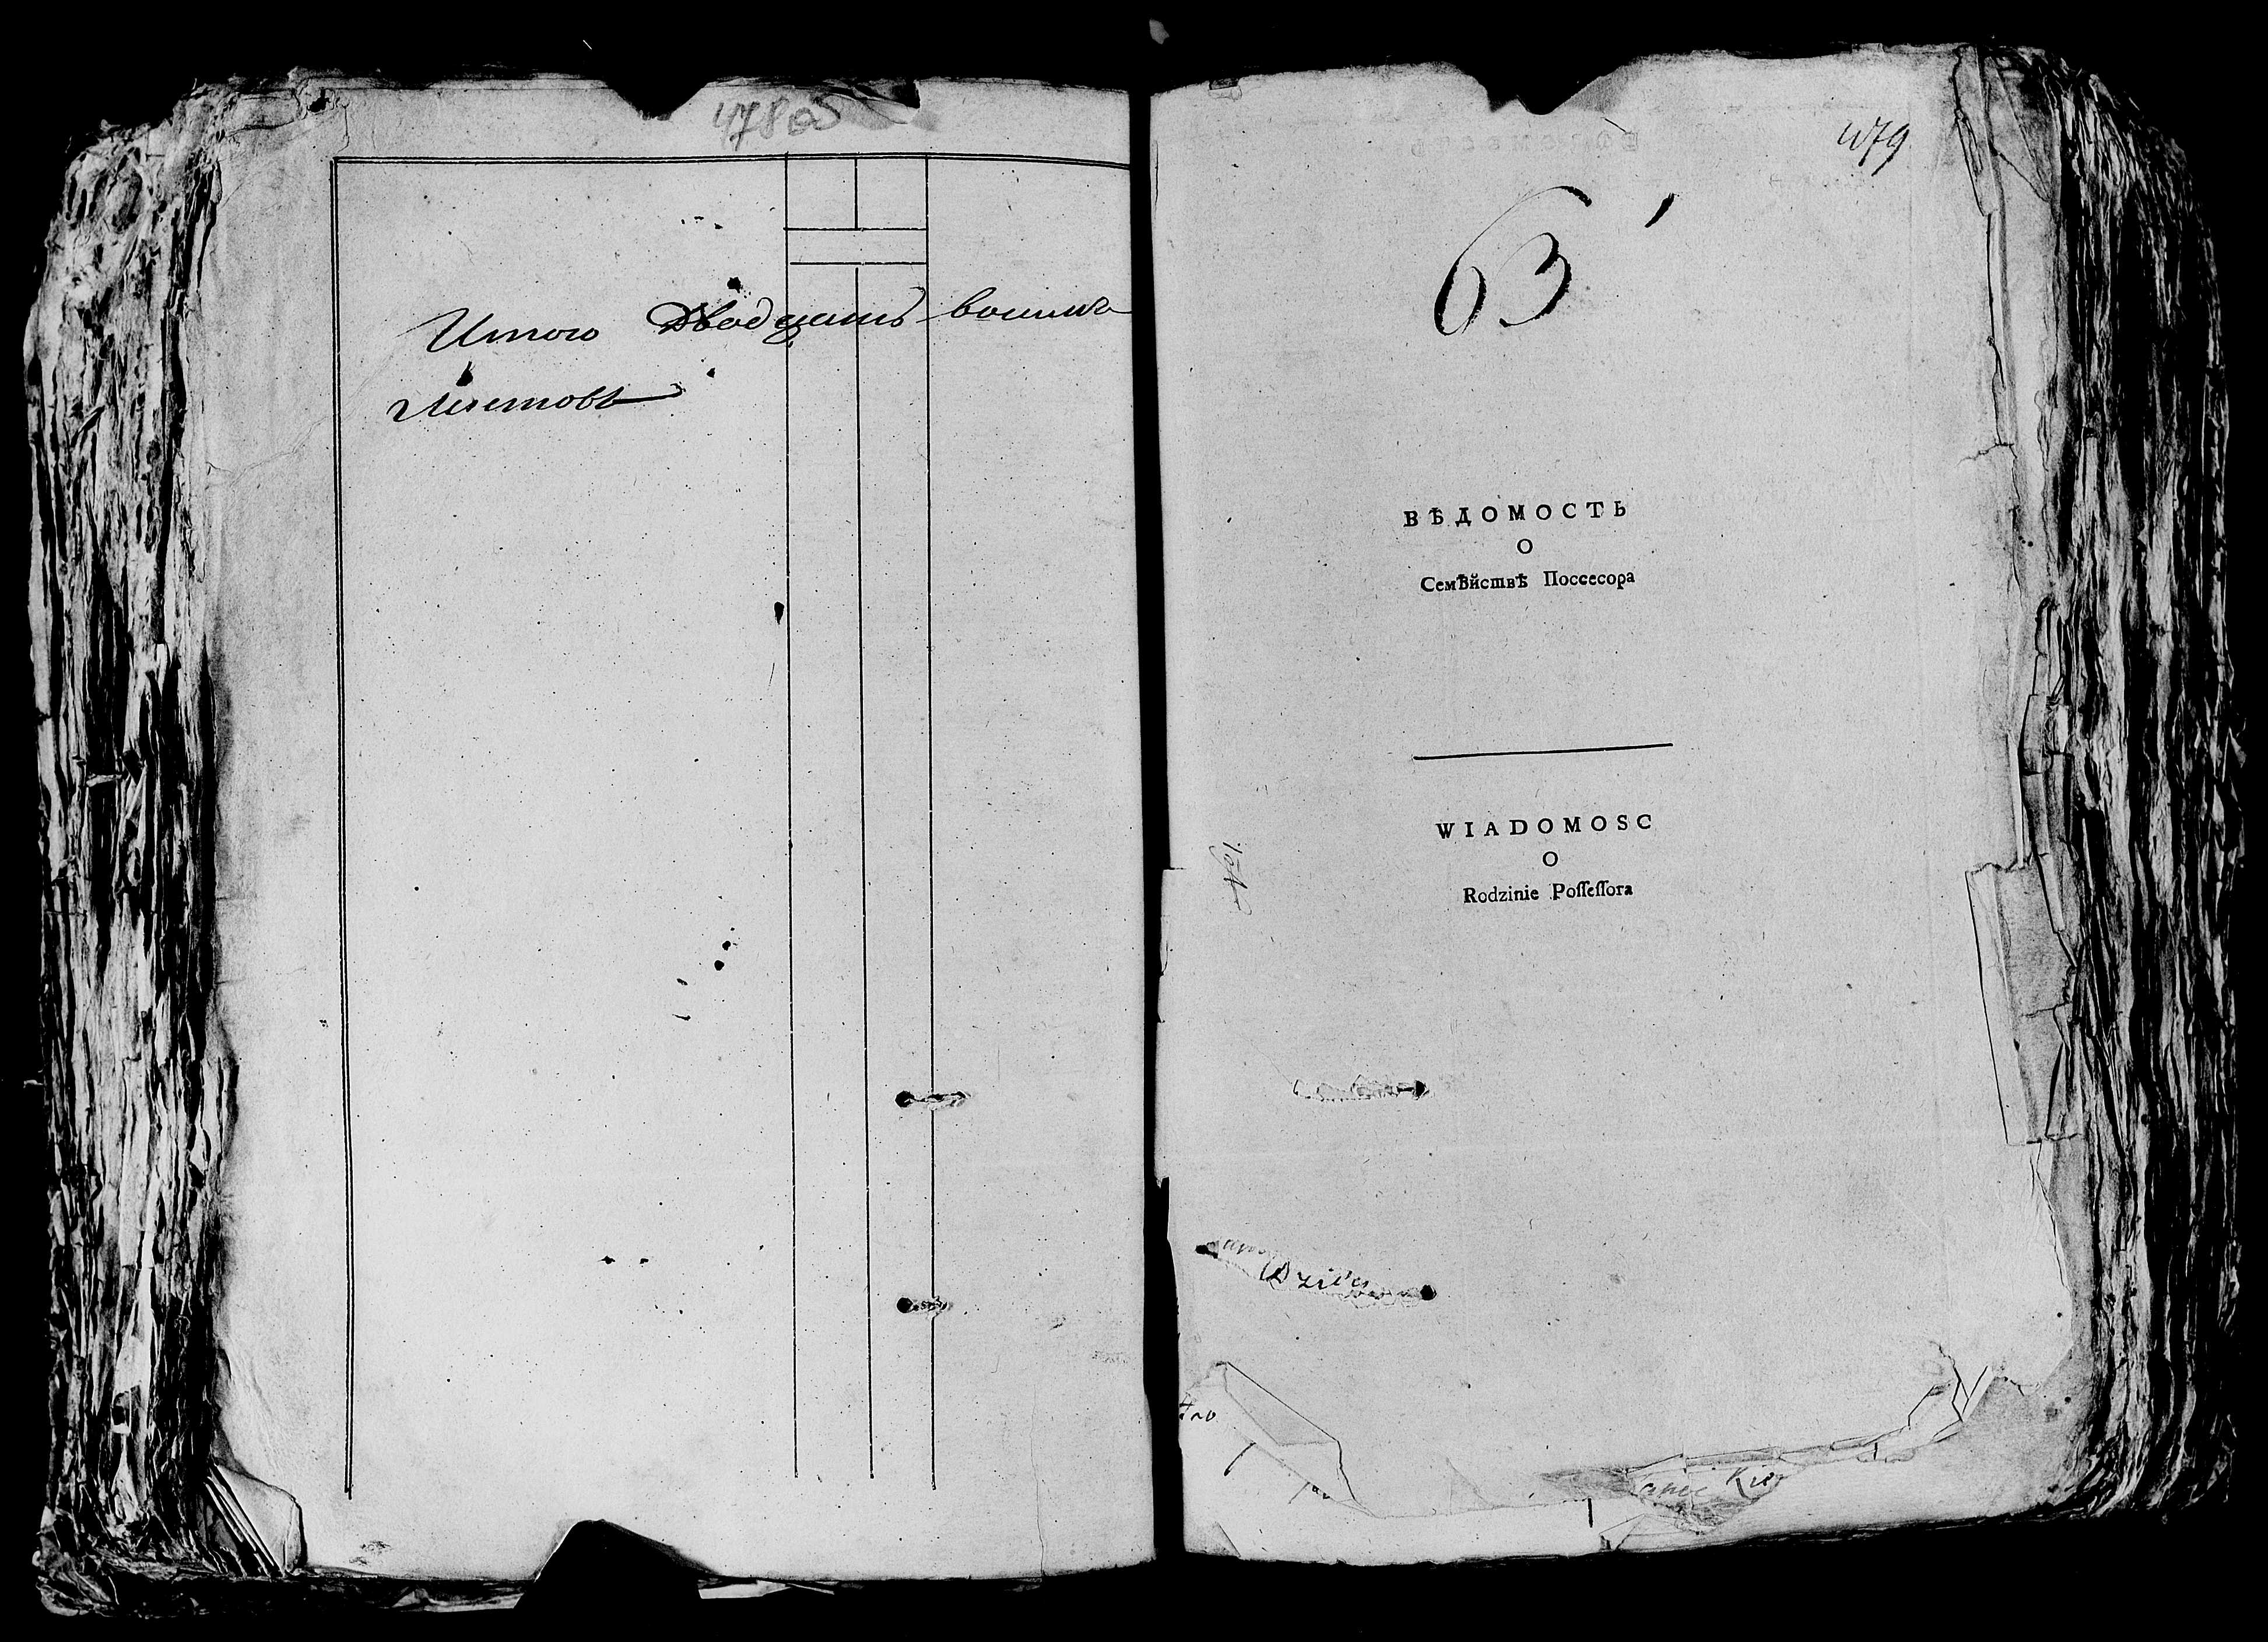 478об
Итого Двадцать восимь
Листовъ
479
63
ВѢДОМОСТЬ
О
Семѣйствѣ Поссесора
WIADOMOSC
O
Rodzinie Poſſeſſora